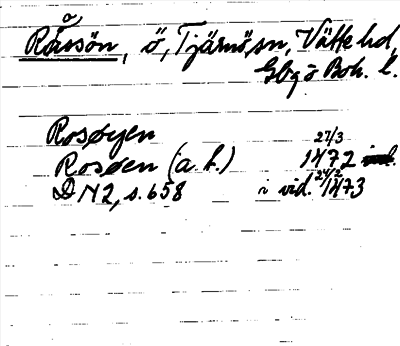 Råssön, ö, Tjärnö sn, Vätte hd,
Gbg o Boh. l.
Rosøyen
Rosøen (a. h.) 27/3 1472
D N 2, s. 658 i vid. 24/2 1473